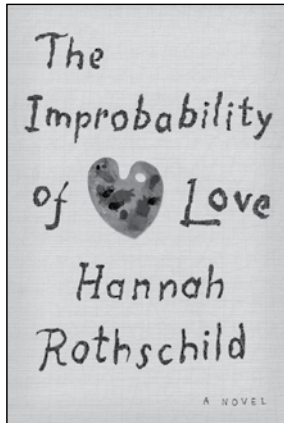 The
Improbability
of Love
Hannah
Rothschild
A NOVEL